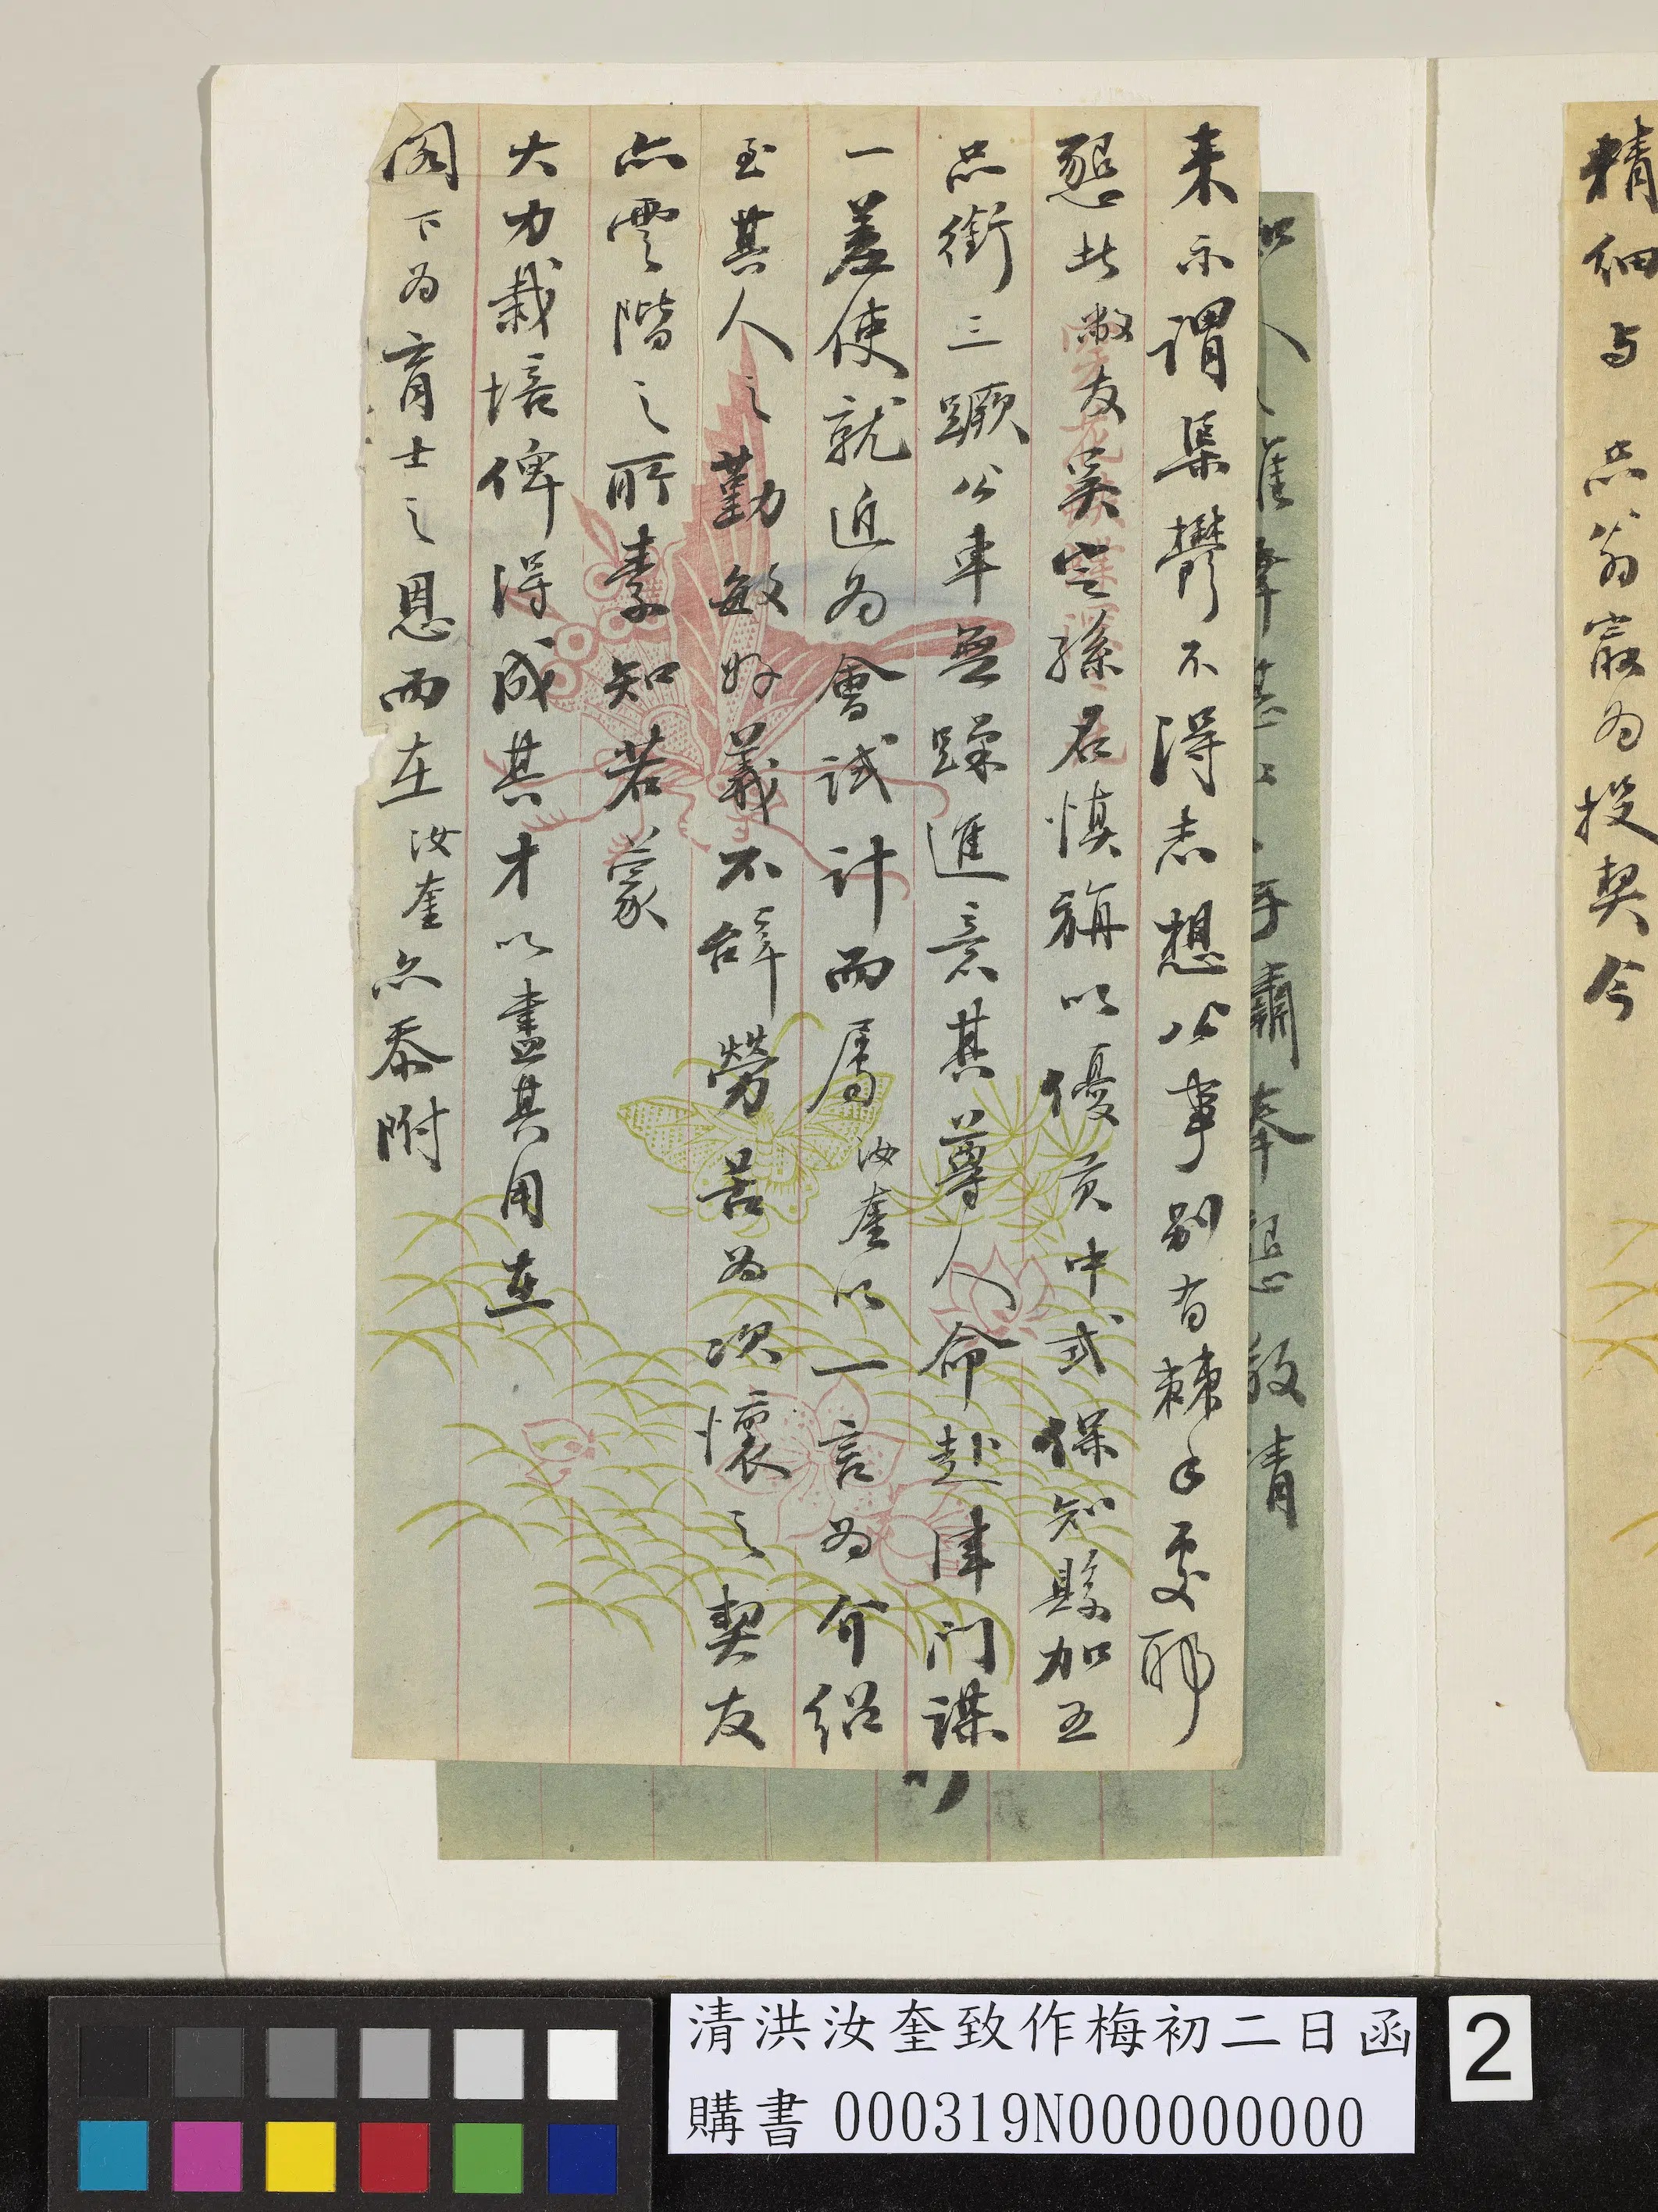 精細与 品翁最為投契今
来示謂集鬱不得志想公事別有棘手處耶
懇此敝友吳 孫君慎 以優貢中式保知縣加五
品銜三蹶公車無躁進意其尊人命赴津门謀
一差使就近為會試計而屬汝奎以一言為介紹
至其人之勤敏好義不辭勞苦為次懷之契友
亦雲階之所素知若蒙
大力栽培俾得成其才以盡其用在
閣下為育士之恩而在汝奎亦忝附
清洪汝奎致作梅初二日函
購書 000319N000000000
2